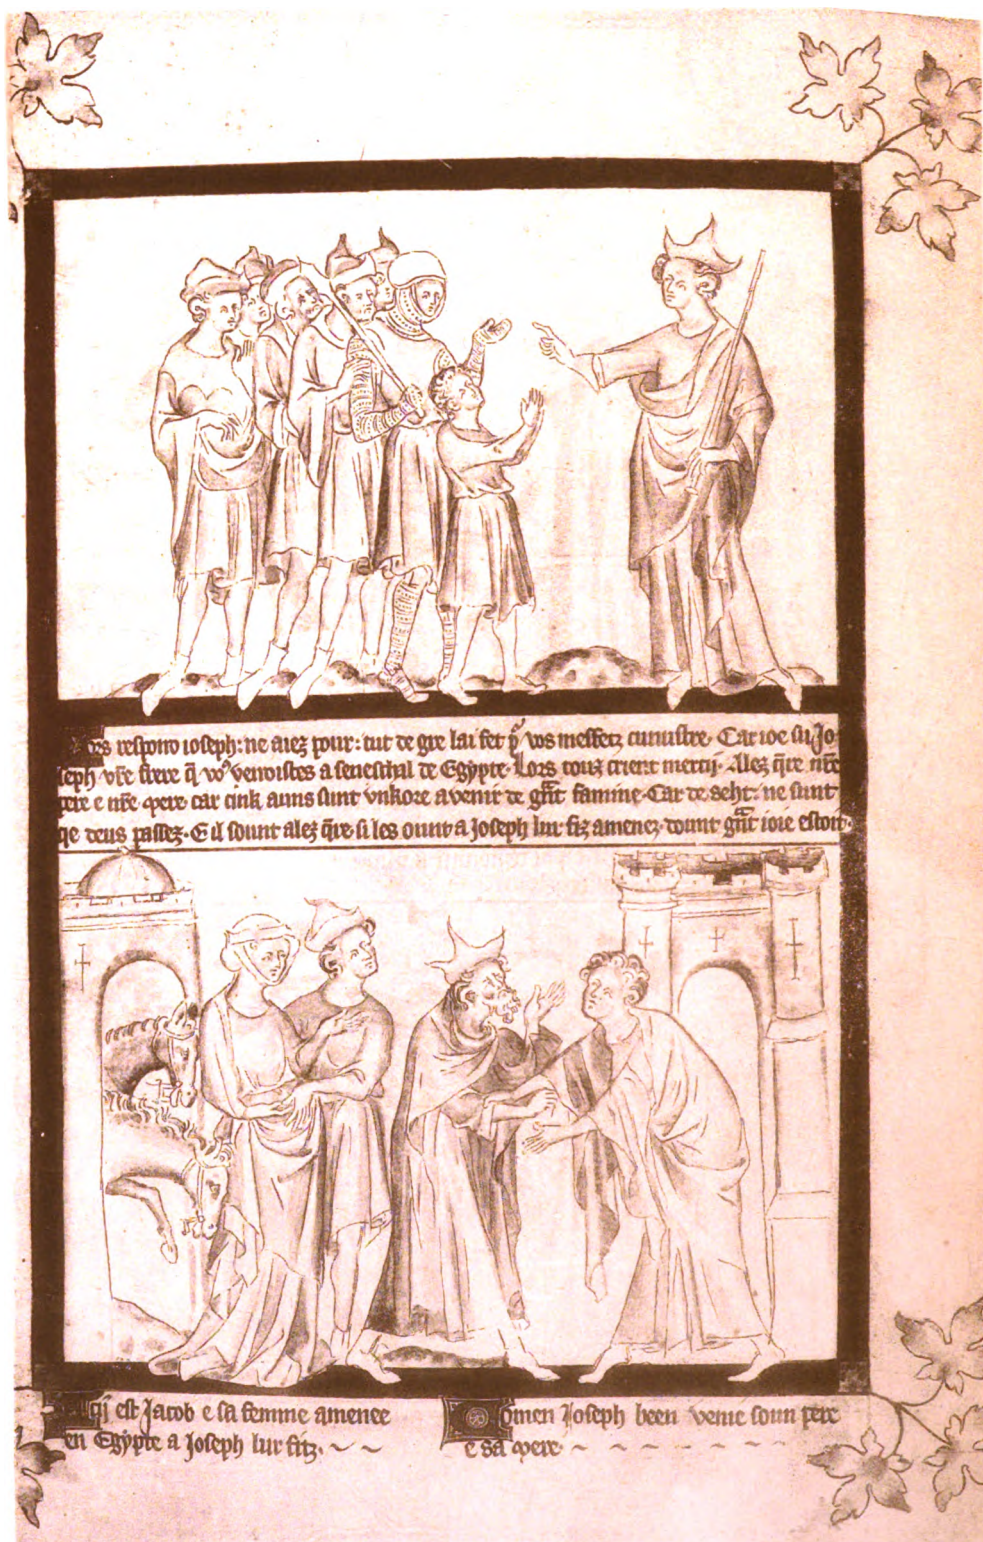 Lors respond ioseph: ne aiez pour: tut de gre lai fet pͬ vos meffetz cunustre. Car ioe su Jo
seph vr̄e frere q̄ vo᷒ venoistes a seneschal de Egypte. Lors touz crient mercij. Alez q̄re nr̄e
pere e nr̄e mere. car cink auns sunt vnkore a venir de gn̄t famine. Car de seht: ne sunt
qe deus passez. E il sount alez q̄re si les ount a Joseph lur fiz amenez. dount gn̄t ioie estoit.
qi est Jacob e sa femme amenee
en Egypte a Joseph lur fitz.
omen Joseph been venie soun pere
e sa mere.